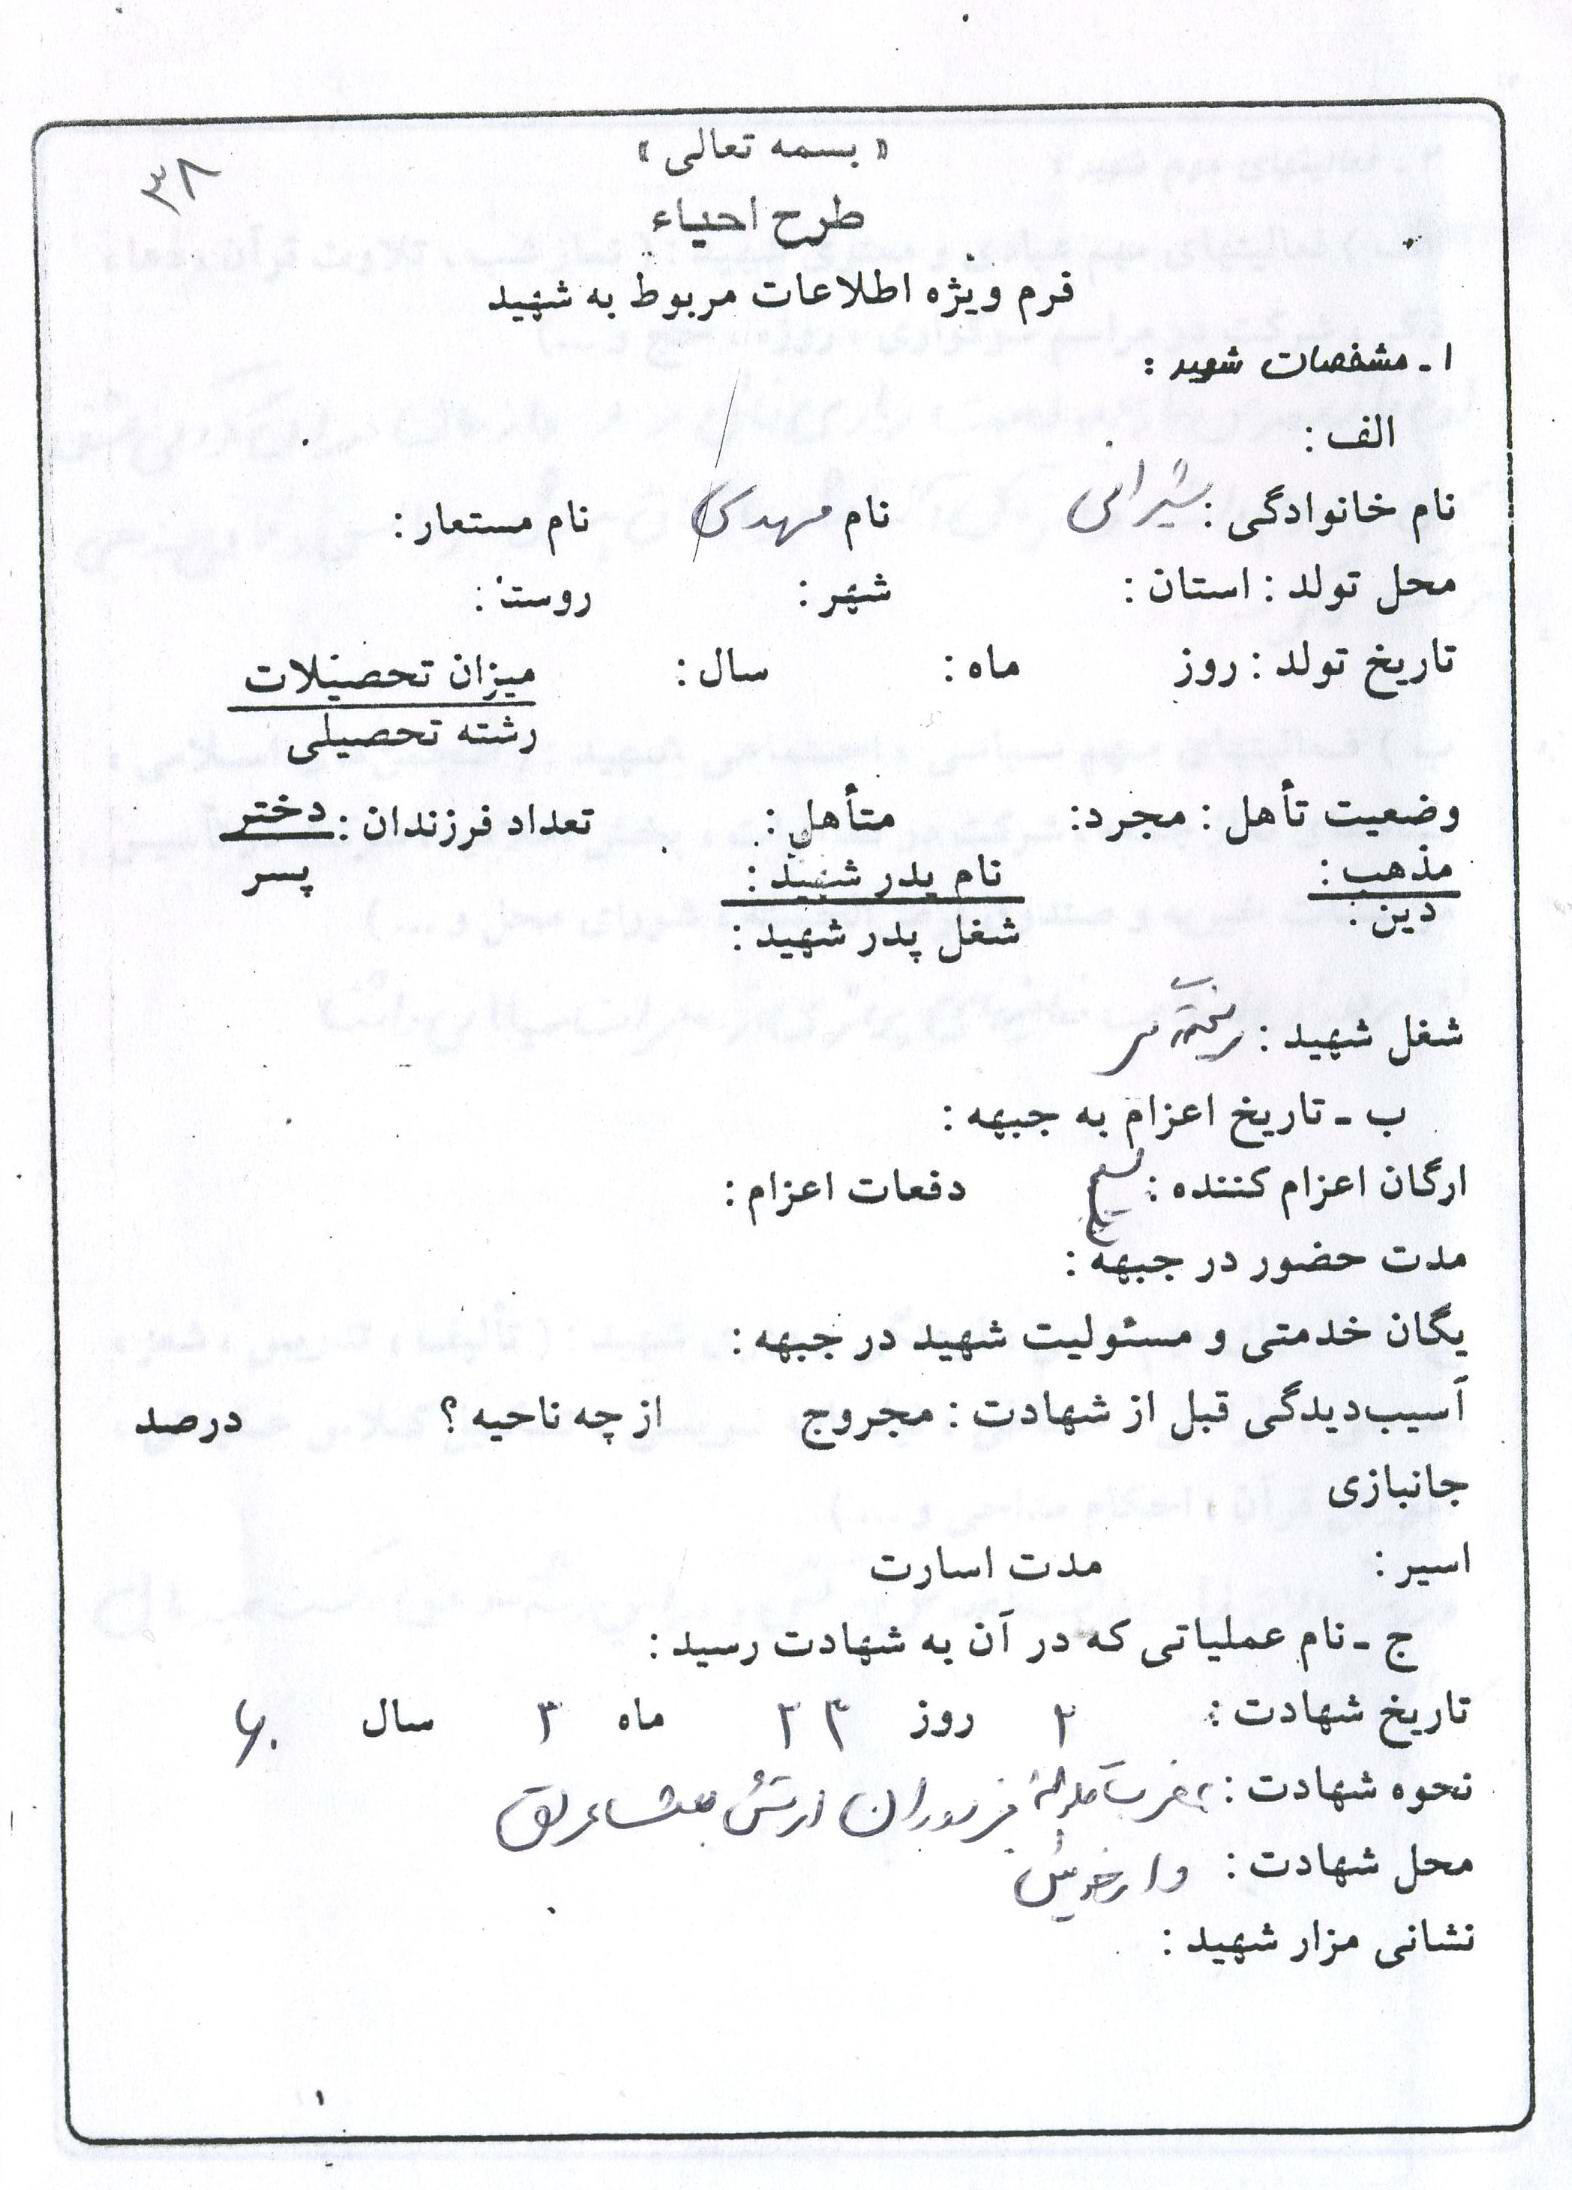 « بسمه تعالی »
۳۸
طرح احیاء
فرم ویژه اطلاعات مربوط به شهید
۱ ـ مشخصات شهید :
الف :
نام خانوادگی : شیرانی نام مهدی نام مستعار :
محل تولد : استان : شهر : روستا :
تاریخ تولد : روز ماه : سال : میزان تحصیلات
رشته تحصیلی
وضعیت تأهل : مجرد: متأهل : تعداد فرزندان : دختر
پسر
مذهب : نام پدر شهید :
دین : شغل پدر شهید :
شغل شهید : ریخته گر
ب ـ تاریخ اعزام به جبهه :
ارگان اعزام کننده : بسیج دفعات اعزام :
مدت حضور در جبهه :
یگان خدمتی و مسئولیت شهید در جبهه :
آسیب‌دیدگی قبل از شهادت : مجروح از چه ناحیه ؟ درصد
جانبازی
اسیر : مدت اسارت
ج ـ نام عملیاتی که در آن به شهادت رسید :
تاریخ شهادت : ۲ روز ۲۳ ماه ۳ سال ۶۰
نحوه شهادت : مزدوران ارتش بعث عراق
محل شهادت : دارخوین
نشانی مزار شهید :
۱